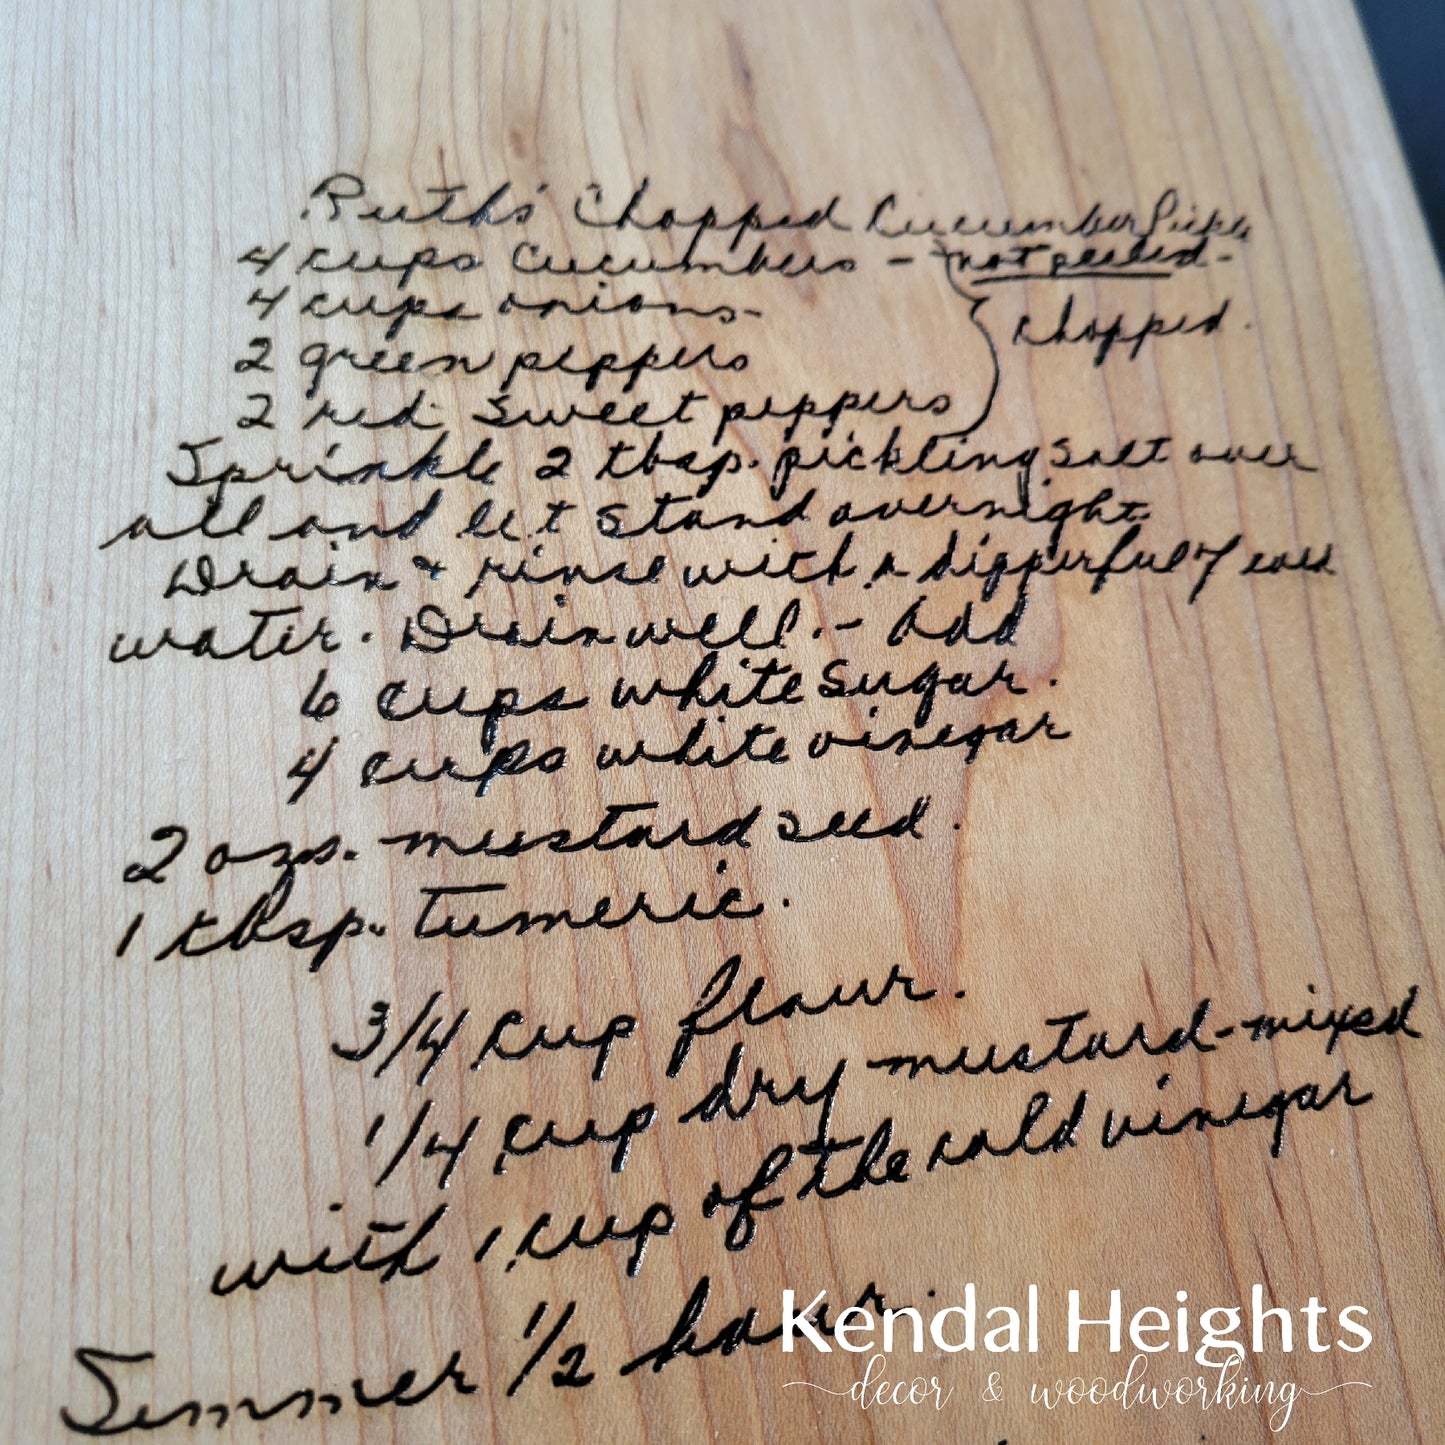 Ruth's Chopped Cucumber Pickle
4 cups Cucumbers - not peeled -
4 cups onions - chopped.
2 green peppers
2 red sweet peppers
Sprinkle 2 tbsp. pickling salt over
all and let stand overnight.
Drain & rinse with a dipperful of cold
water. Drain well. - Add
6 cups white sugar.
4 cups white vinegar
2 ozs. mustard seed.
1 tbsp. tumeric.
3/4 cup flour.
1/4 cup dry mustard - mixed
with 1 cup of the cold vinegar
Simmer 1/2 hour.
Kendal Heights
decor & woodworking